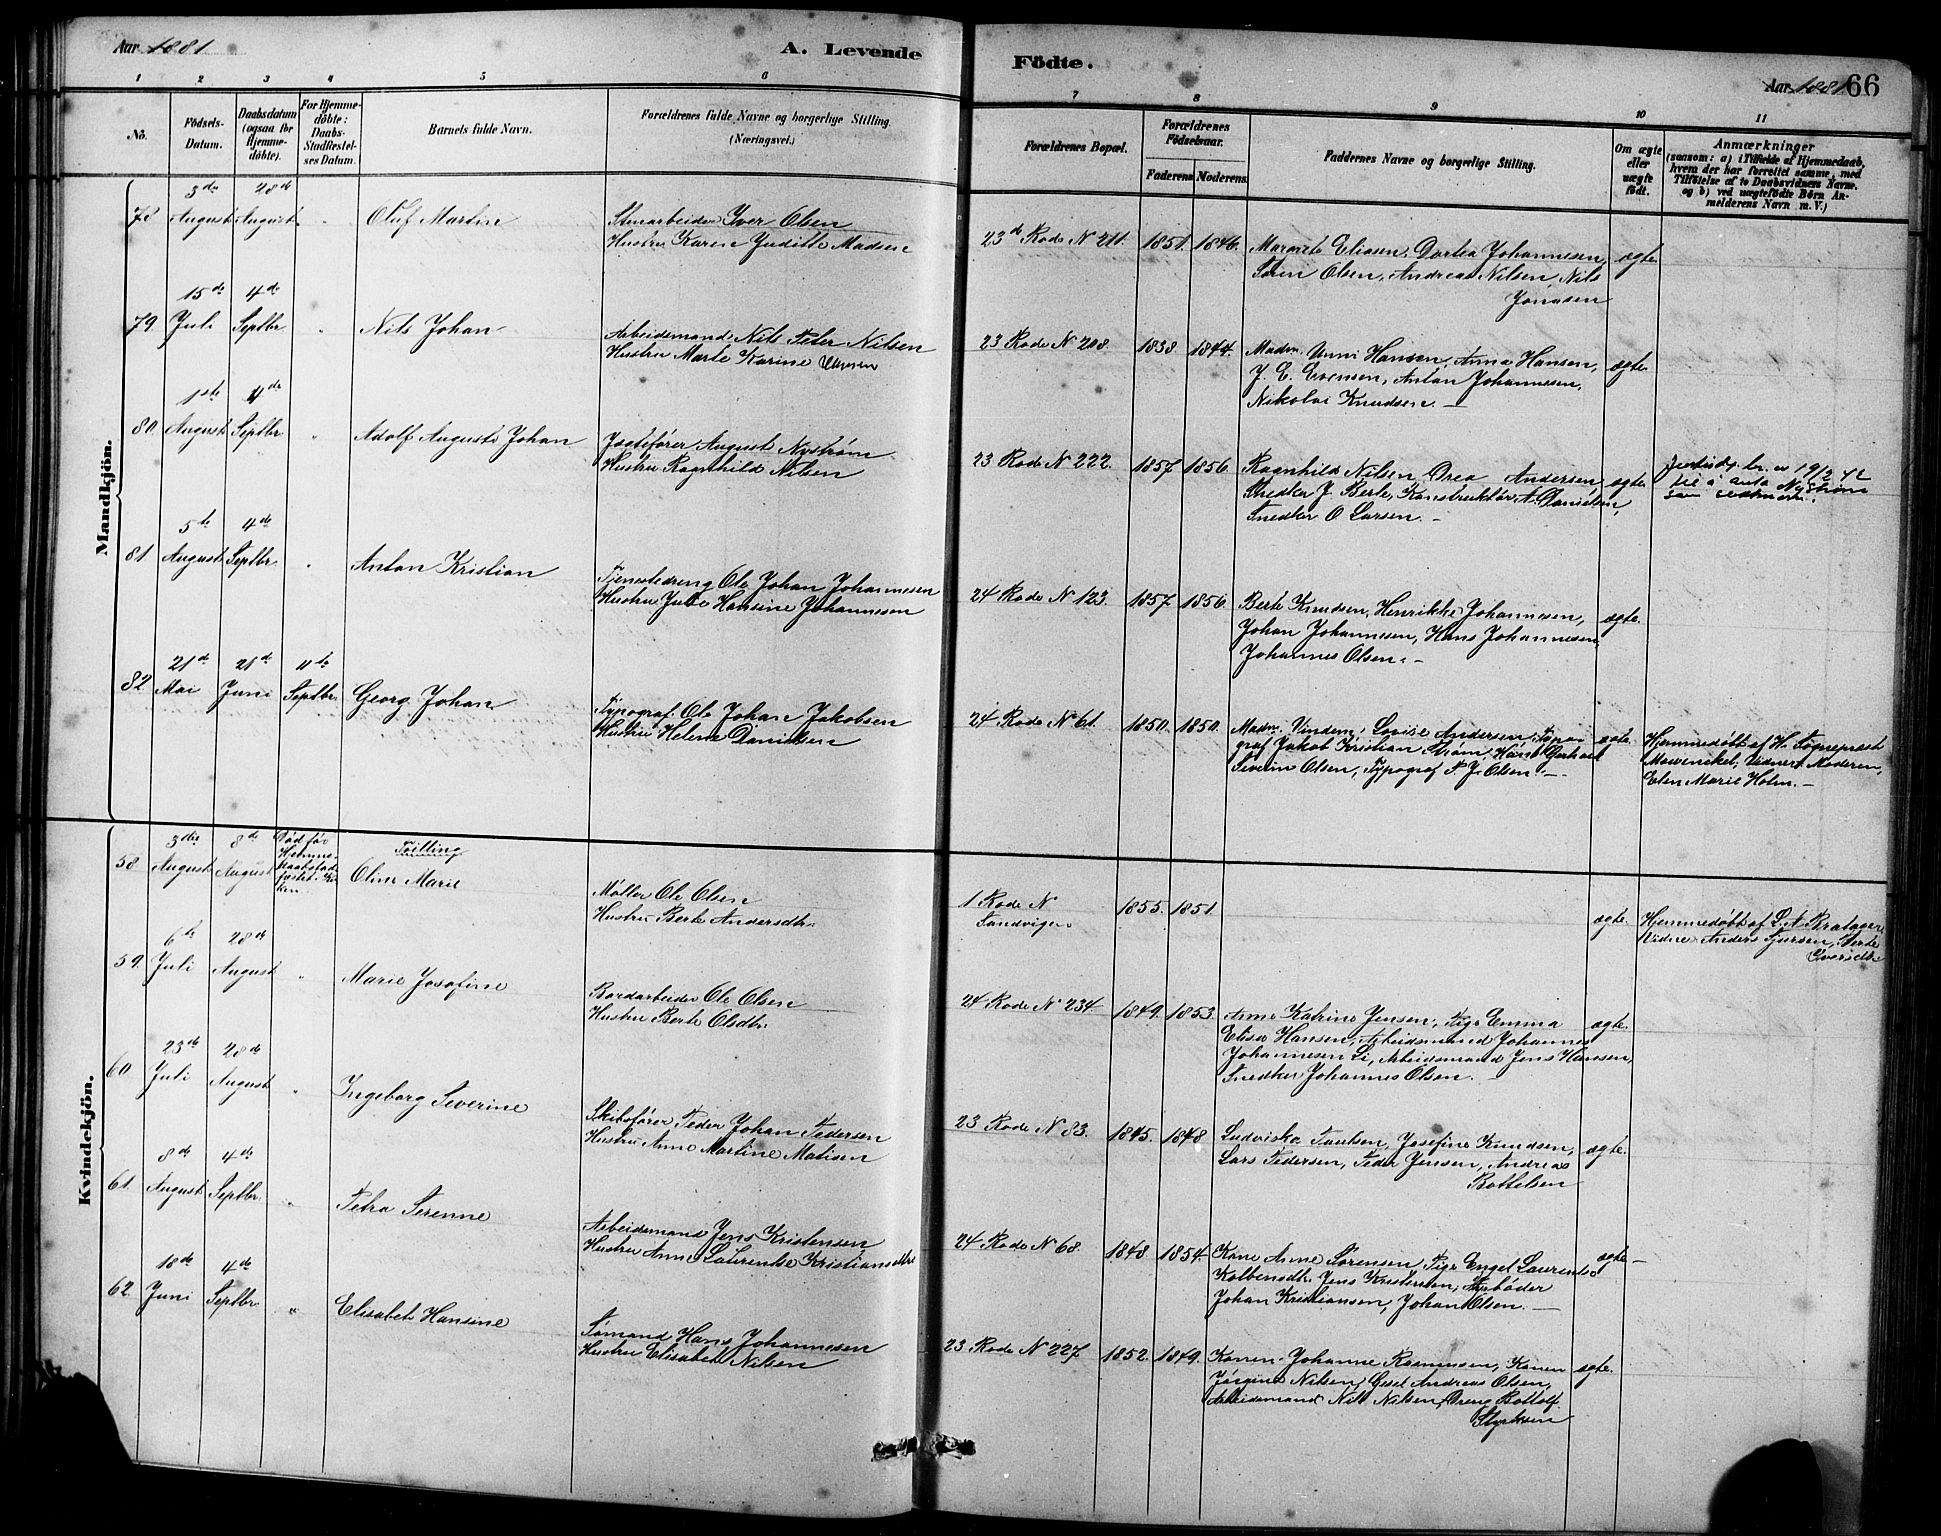 Aar 1881
A. Levende
Födte.
Aar 1881
66
1 2 3 4 5 6 7 8 9 10 11
No.
Födsels-Datum.
Daabsdatum (ogsaa for Hjemme-döbte).
For Hjemme-döbte: Daabs-Stadfestel-ses Datum.
Barnets fulde Navn.
Forældrenes fulde Navne og borgerlige Stilling.
(Næringsvei.)
Forældrenes Bopæl.
Forældrenes Födselsaar.
Faderens Moderens.
Faddernes Navne og borgerlige Stilling.
Om ægte eller uægte födt.
Anmærkninger
(saasom: a) i Tilfælde af Hjemmedaab, hvem der har forrettet samme, med Tilföielse af to Daabsvidners Navne, og b) ved uægtefödte Börn An-melderens Navn m. V.)
Mandkjön.
78
3die August
28de August
"
Oluf Martin
Stenarbeider Iver Olsen
Hustru Karen Juditte Madsen
23de Rode N 211.
1851. 1846.
Margrete Eliasen, Dortea Johannesen,
Søren Olsen, Andreas Nilsen, Nils
Jonasen
ægte
79
15de Juli
4de Septbr
"
Nils Johan
Arbeidsmand Nils Peter Nilsen
Hustru Marte Karine
23 Rode N 208.
1838. 1844.
Madm. Unni Hansen, Anna Hansen,
J. E. Evensen, Anton Johannesen,
Nikolai Knudsen. —
ægte
80
1ste August
4de Septbr
"
Adolf August Johan
Jagtefører August Nystrøm
Hustru Ragnhild Nilsen
23 Rode N 222.
1857. 1856.
Ragnhild Nilsen, Drea Andersen,
Snedker J. Berle, Konstruktør A. Danielsen,
Snedker O Larsen. —
ægte
Justisdp. br. av 19/2 42
til å anta Nystrøm
som
81
5te August
4de Septbr
"
Anton Kristian
Tjenestedreng Ole Johan Johannesen
Hustru Julie Hansine Johannesen
24 Rode N 123.
1857. 1856.
Berte Knudsen, Henrikke Johannesen,
Johan Johannesen, Hans Johannesen,
Johannes Olsen. —
ægte.
82
21de Mai
21de Juni
11te Septbr.
Georg Johan
Typograf Ole Johan Jakobsen
Hustru Helene Danielsen
24 Rode N 61.
1850. 1850.
Madm. Vindenes, Lovise Andersen, Typo-
graf Jakob Kristian Strøm, Hans Gerhard
Severin Olsen, Typograf P. J. Olsen. —
ægte.
Hjemmedøbt af Hr Sogneprest
Mowinckel, Vidner: Moderen,
Elen Marie Holm. —
Kvindekjön.
58
3die August
8de August
Død før
Hjemme-
daabsstad-
fæstet i Kir-
ken
Tvilling
Oline Marie
Møller Ole Olsen
Hustru Berte Andersdtr.
1 Rode N
Sandvigen
1855. 1851.
ægte.
Hjemmedøbt af L. A. Bratager
Vidne Anders Sjursen, Berte
Iversdtr
59
6te Juli
28de August
"
Marie Josefine
Bordarbeider Ole Olsen
Hustru Berte Olsdtr.
24 Rode N 234
1849. 1853.
Anne Katrine Jensen, Pige Emma
Elise Hansen, Arbeidsmand Johannes
Johannesen Li, Arbeidsmand Jens Hansen,
Snedker Johannes Olsen.
ægte
60
23de Juli
28de August
"
Ingeborg Severine
Skibsfører Peder Johan Pedersen
Hustru Anne Martine Matisen
23 Rode N 83.
1845. 1848
Ludviska Paulsen, Josefine Knudsen,
Lars Pedersen, Peder Jensen, Andreas
Bottelsen
ægte.
61
8de August
4de Septbr
"
Petra Serenne
Arbeidsmand Jens Kristensen
Hustru Anne Laurentse Kristiansdtr
24 Rode N 68.
1848. 1854
Kone Anne Sørensen, Pige Engel Laurentse
Kolbensdtr. Jens Kristensen, Bøder
Johan Kristiansen, Johan Olsen. —
ægte —
62
18de Juni
4de Septbr
"
Elisabet Hansine
Sømand Hans Johannesen
Hustru Elisabet Nilsen
23 Rode N 227
1852. 1849.
Konen Johanne Rasmussen, Konen
Jørgine Nilsen, Gesel Andreas Olsen,
Arbeidsmand Nils Nilsen, Dreng Bottolf
Styrksen
ægte.